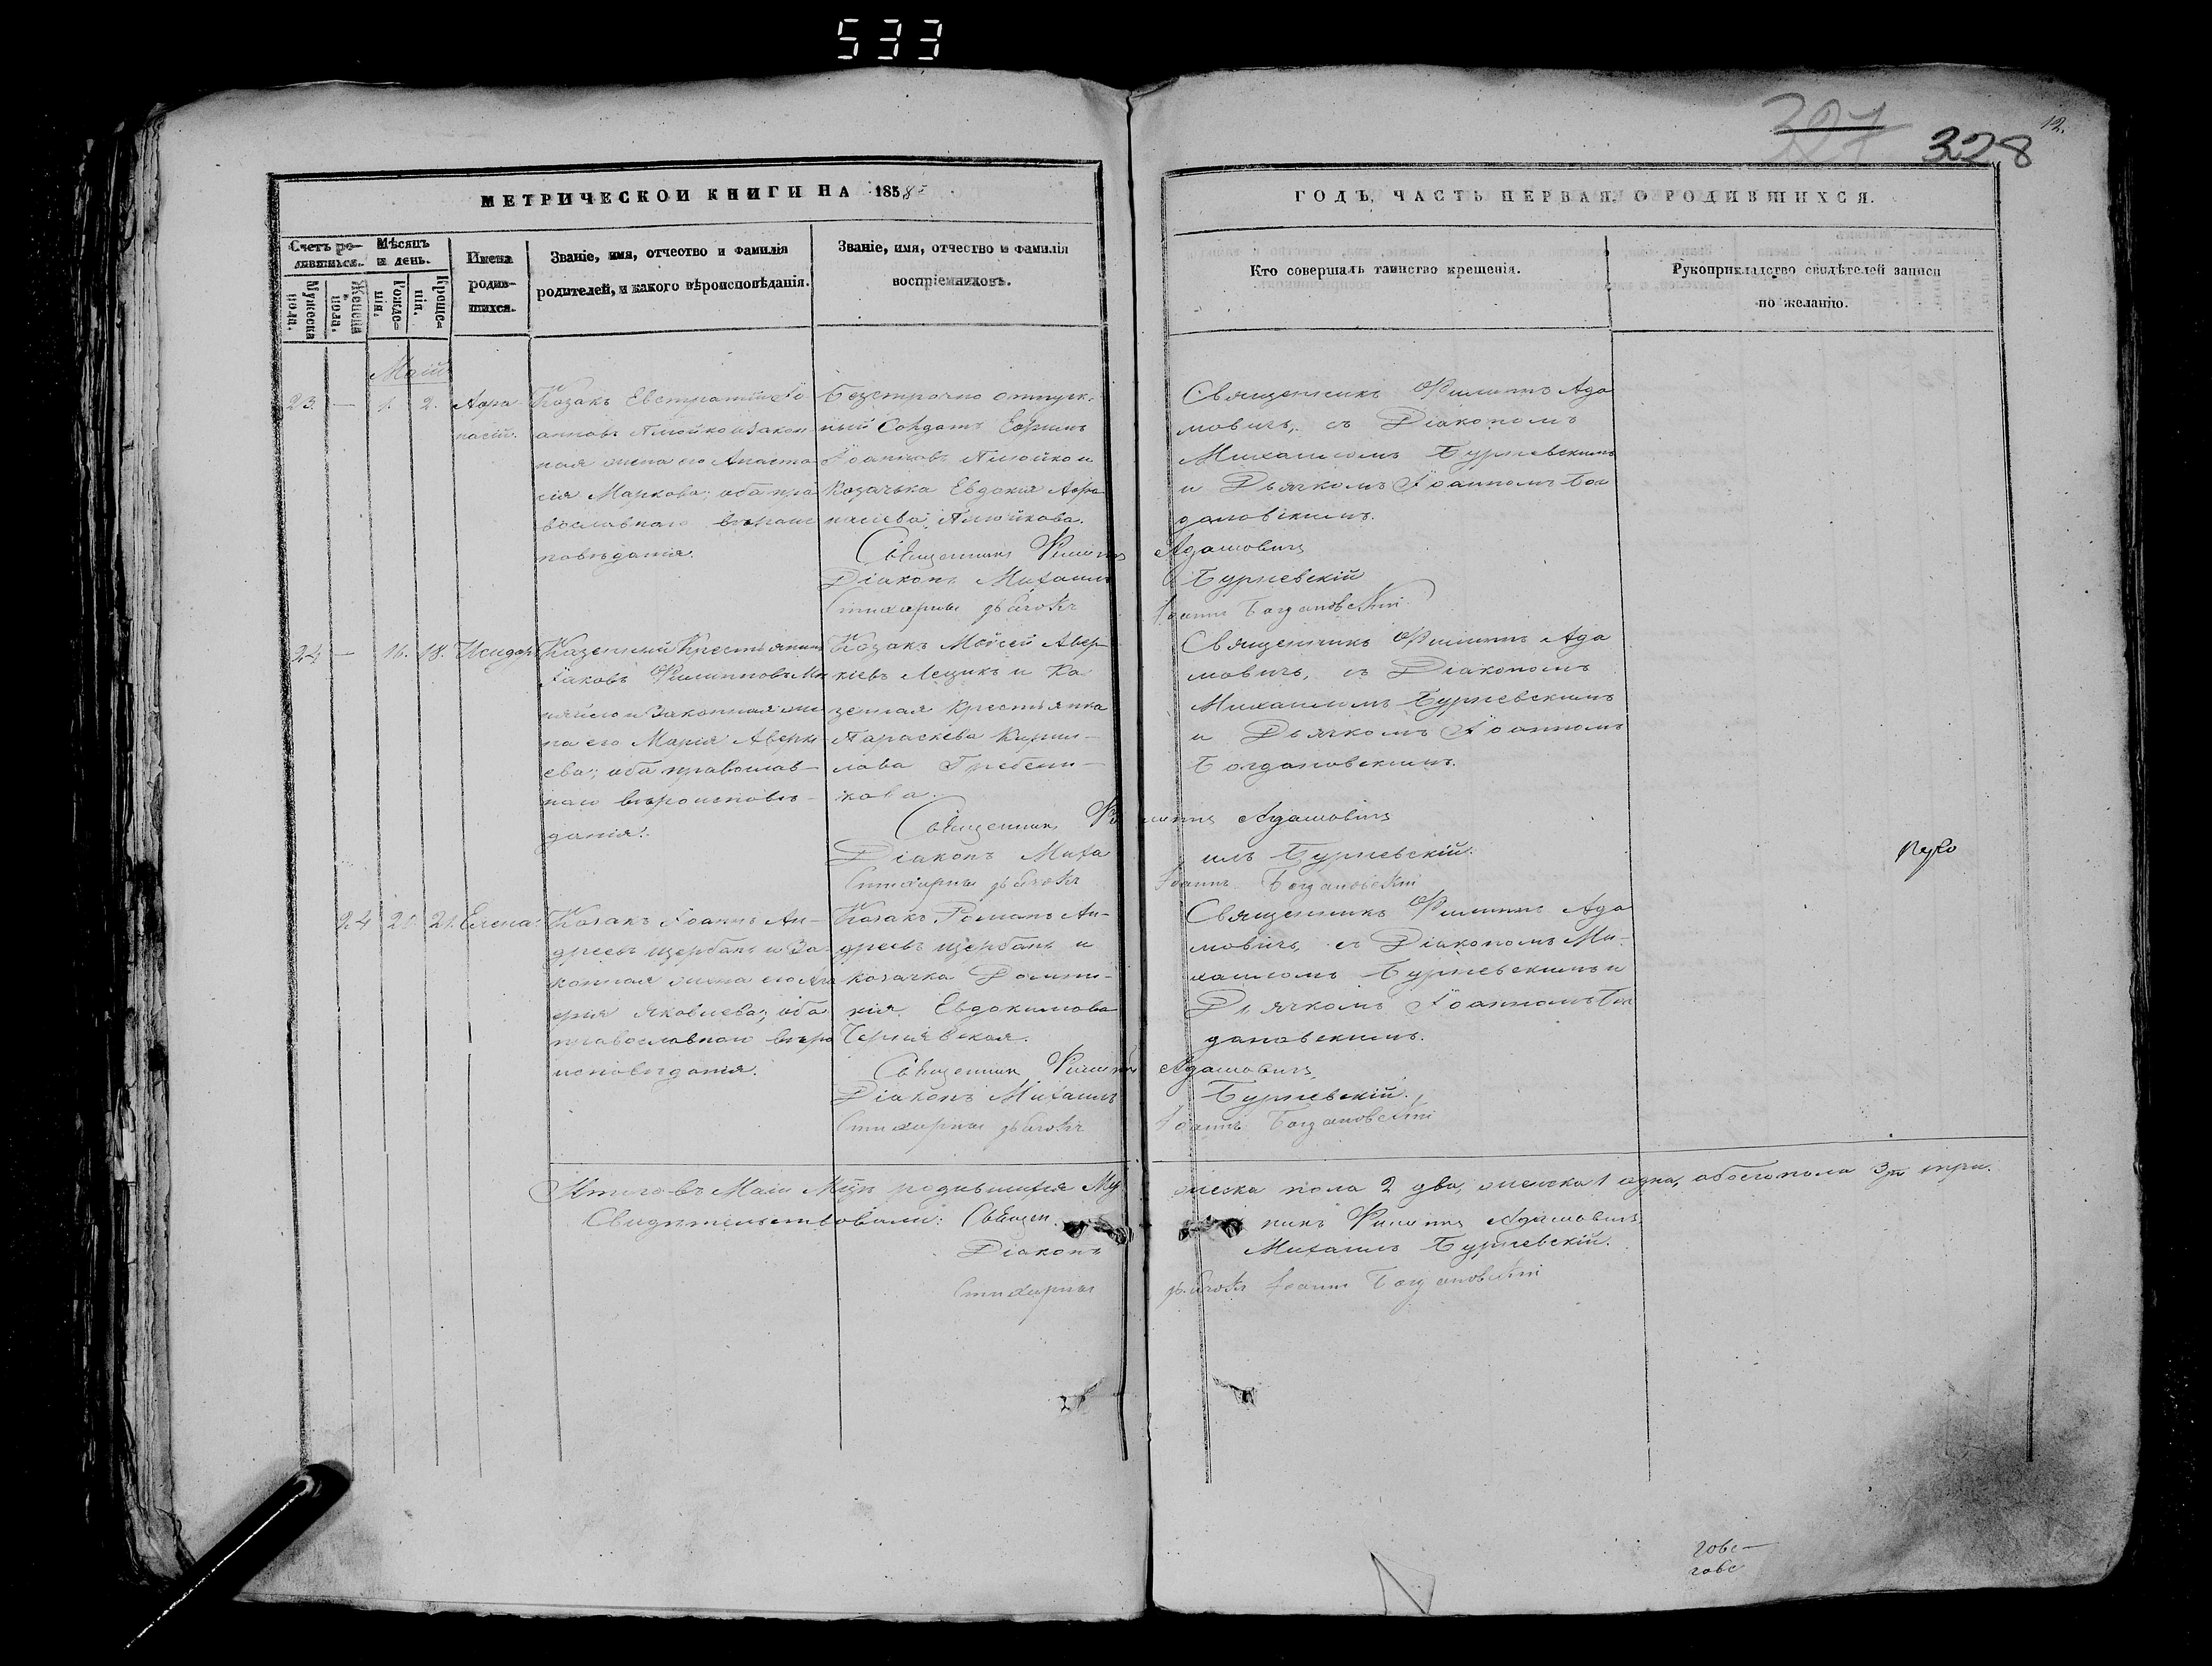 533
327
328
12.
МЕТРИЧЕСКОЙ КНИГИ НА 1858й
ГОДЪ, ЧАСТЬ ПЕРВАЯ, О РОДИВШИХСЯ.
Счетъ ро-
дившихся.
Мѣсяцъ
и день.
Мужеска
пола.
Женска
пола.
Рожде-
нія.
Креще-
нія.
Имена
родив-
шихся.
Званіе, имя, отчество и фамилія
родителей, и какого вѣроисповѣданія.
Званіе, имя, отчество и фамилія
воспріемниковъ.
Кто совершалъ таинство крещенія.
Рукоприкладство свидѣтелей записи
по желанію.
Маій
23. — 1. 2. Афа-
насій.
Козакъ Евстратій Іо
анновъ Плюйко и закон
ная жена его Анаста
сія Маркова; оба пра
вославнаго вѣроис
повѣданія.
Безсрочно отпуск.
ный Солдатъ Ефимъ
Іоанновъ Плюйко и
Козачька Евдокія Афа
насіева Плюйкова.
Священникъ Филиппъ Ада
мовичъ, съ Діакономъ
Михаиломъ Бурневскимъ
и Дьячкомъ Іоанномъ Бог
дановскимъ.
Священникъ Филиппъ Адамовичъ
Діаконъ Михаилъ Бурневскій
Стихарный дьячокъ Іоаннъ Богдановскій
24 — 16. 18. Исидоръ
Казенный Крестьянинъ
Іаковъ Филипповъ Ми
няйло и Законная же
на его Марія Аверкі
ева; оба православ-
наго вѣроисповѣ-
данія.
Козакъ Мойсей Авер-
кіевъ Лещикъ и Ка
зенная Крестьянка
Параскева Кирил-
лова Гребени-
кова.
Священникъ Филиппъ Ада
мовичъ, съ Діакономъ
Михаиломъ Бурневскимъ
и Дьячкомъ Іоанномъ
Богдановскимъ.
Священникъ Филиппъ Адамовичъ
Діаконъ Михаилъ Бурневскій.
Стихарный дьячокъ Іоаннъ Богдановскій
24 21. Елена.
Козакъ Іоаннъ Ан-
дреевъ Щербань и За-
конная жена его Ага
фія Яковлева; оба
православнаго вѣро
исповѣданія.
Козакъ Романъ Ан-
дреевъ Щербань и
козачка Домни-
кія Евдокимова
Чернявская.
Священникъ Филиппъ Ада
мовичъ, съ Діакономъ Ми-
хаиломъ Бурневскимъ и
Дьячкомъ Іоанномъ Бог
дановскимъ.
Священникъ Филиппъ Адамовичъ
Діаконъ Михаилъ Бурневскій.
Стихарный дьячокъ Іоаннъ Богдановскій
Итого въ Маіи Мцѣ родившихся Му жеска пола 2 два, женска 1 одна, обоего пола 3 три.
Свидѣтельствовали: Священ никъ Филиппъ Адамовичъ
Діаконъ Михаилъ Бурневскій.
Стихарный дьячокъ Іоаннъ Богдановскій